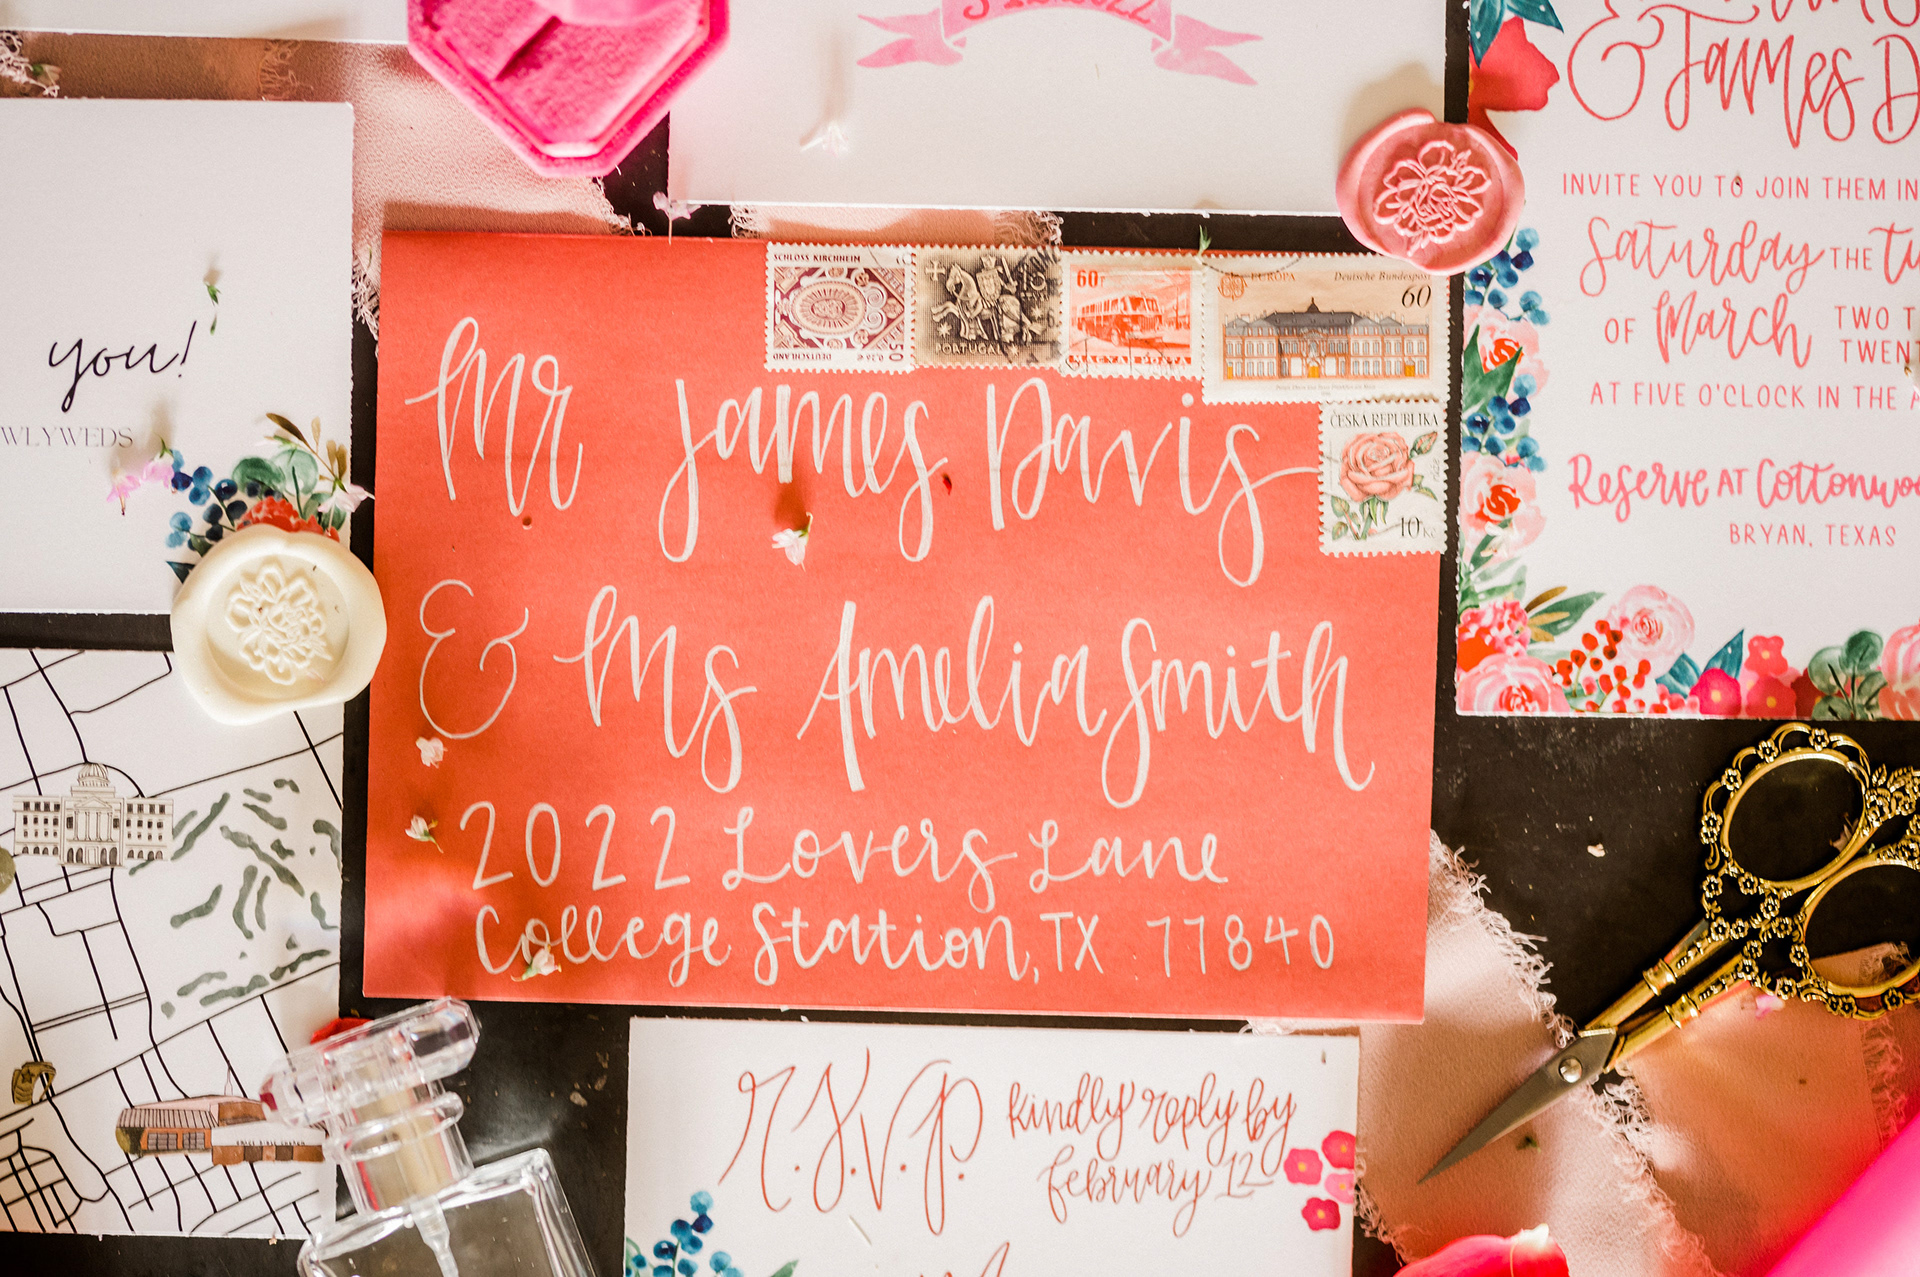 & James D
INVITE YOU TO JOIN THEM IN
Saturday THE
OF March TWO T
TWENT
AT FIVE O'CLOCK IN THE A
Reserve AT Cottonwoo
BRYAN, TEXAS
you!
WLYWEDS
SCHLOSS KIRCHHEIM
DEUTSCHLAND
50
PORTUGAL
60f
MAGYAR POSTA
EUROPA
Deutsche Bundespost
60
ČESKÁ REPUBLIKA
růže
10 Kč
Mr James Davis
& Ms Amelia Smith
2022 Lovers Lane
College Station, TX 77840
R.S.V.P. kindly reply by
february 12